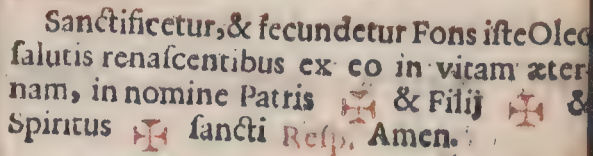 Sanctificetur, & fecundetur Fons iſte Oleo
ſalutis renaſcentibus ex eo in vitam æter-
nam, in nomine Patris ✠ & Filij ✠ &
Spiritus ✠ ſancti Reſp. Amen.